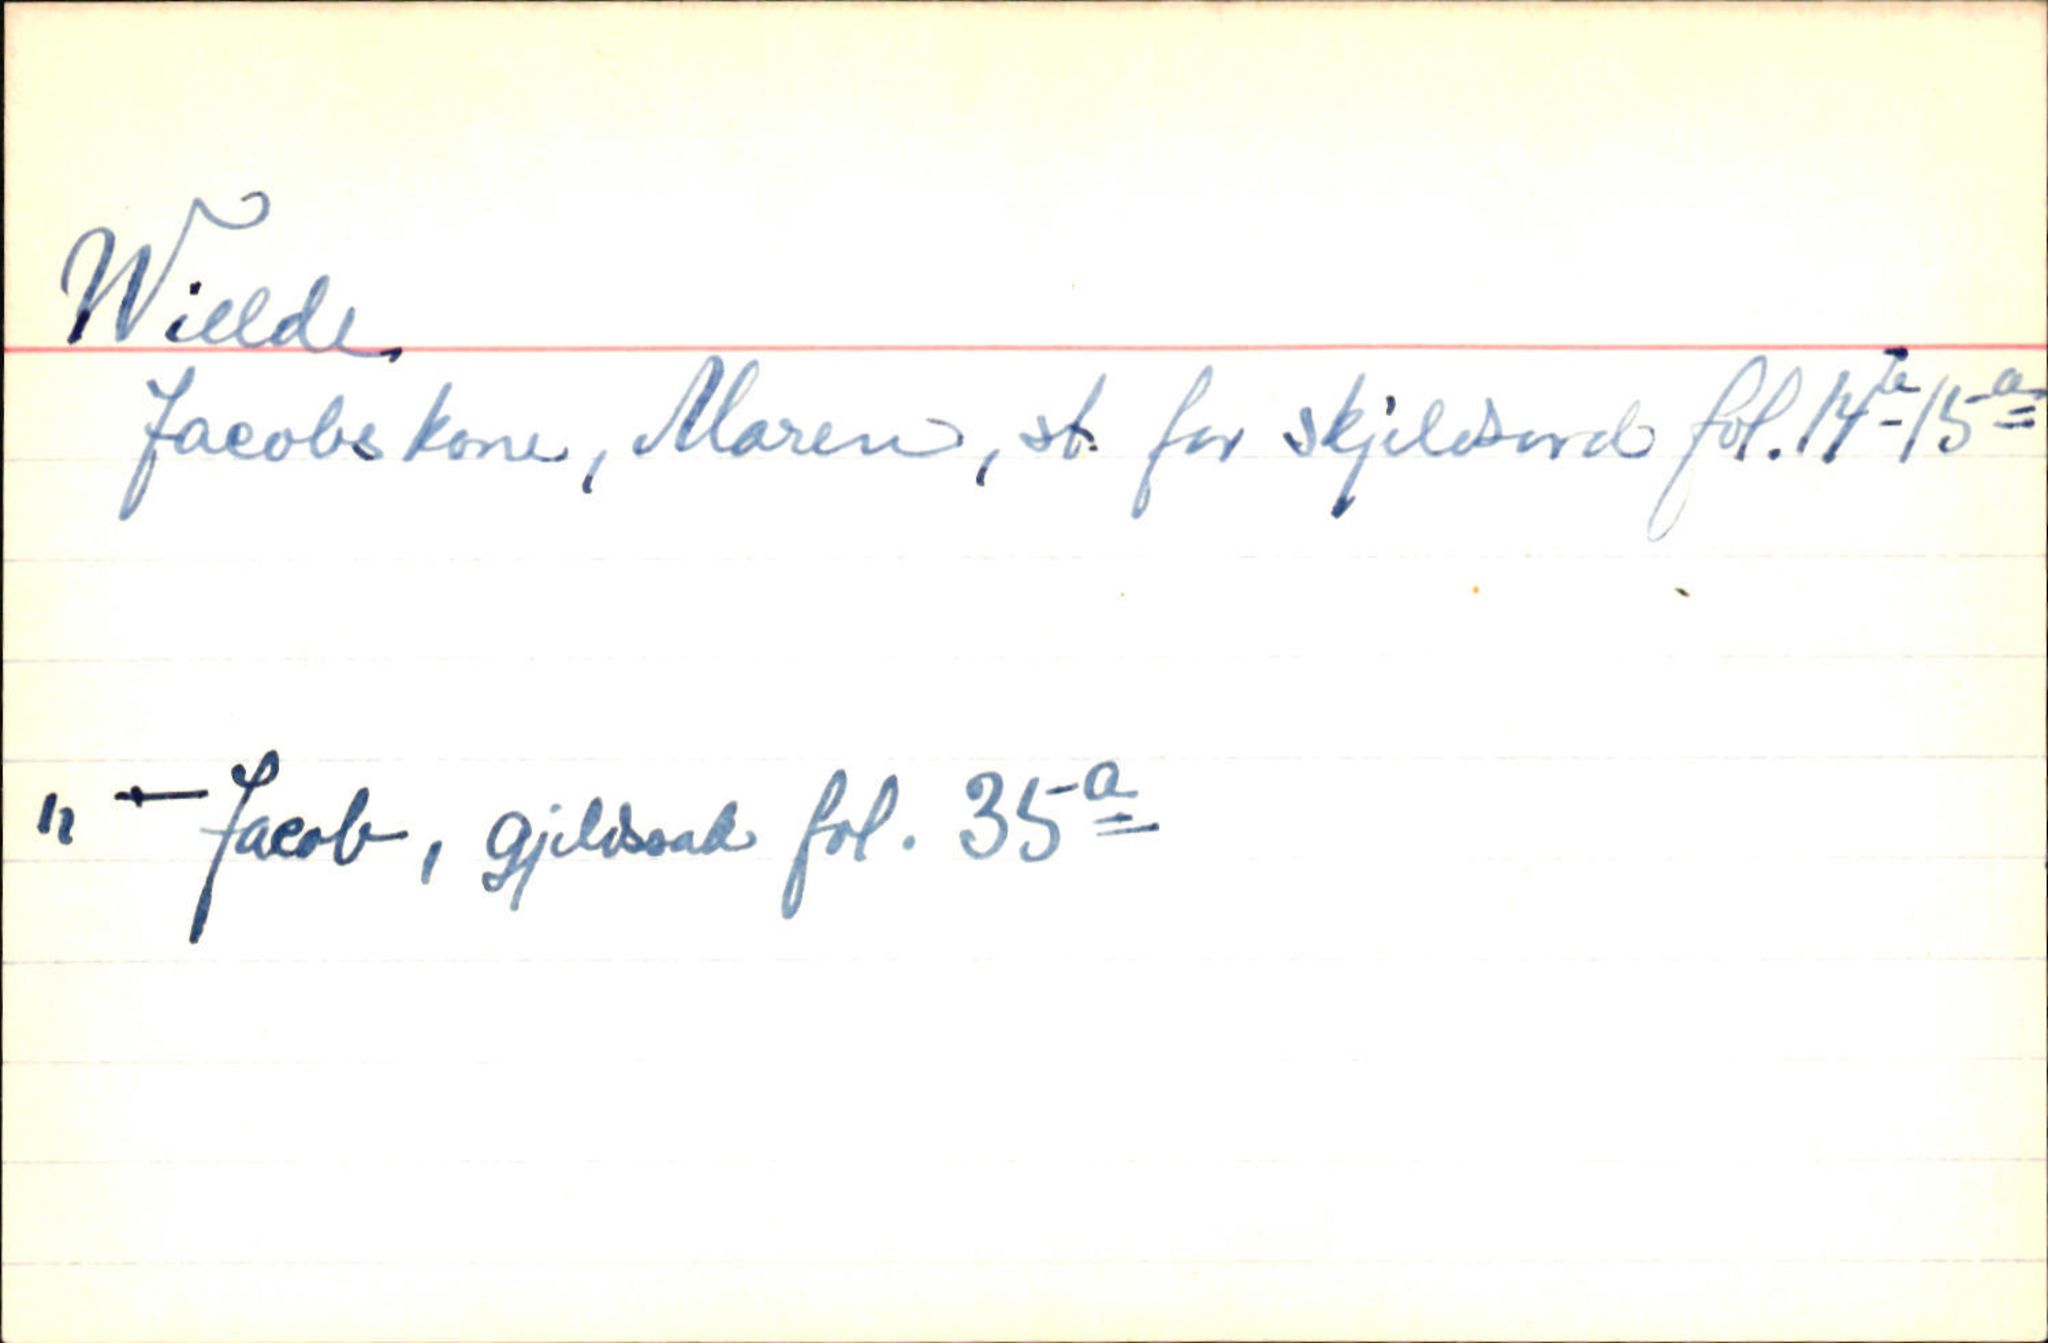 Wielde,
Jacobs kone, Maren, st. for skjeldsord fol. 14b-15a
" — Jacob, gjeldssak fol. 35a